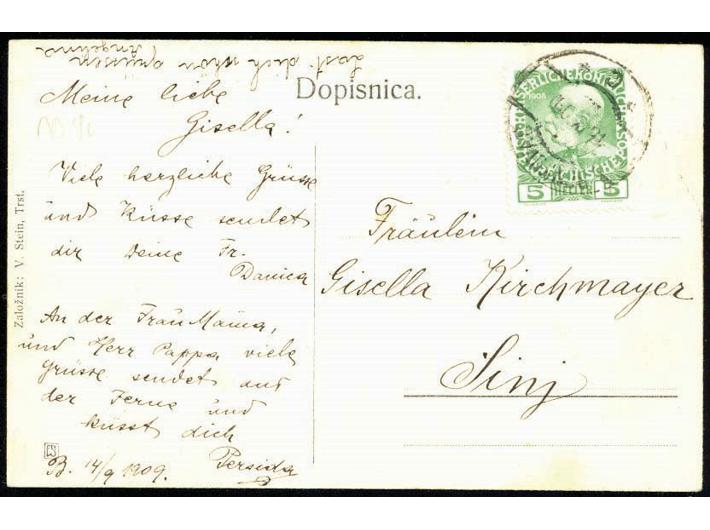 Last dich schön grüssen
Angelina
Meine liebe
Gisella!
Viele herzliche Grüsse
und Küsse sendet
dir deine Fr.
Danica
An der Frau Mama,
und Herr Pappa viele
Grüsse sendet aus
der Ferne und
küsst dich
Persida
B. 14/9 1909.
Dopisnica.
5
5
1908
Fräulein
Gisella Kirchmayer
Sinj
Založnik: V. Stein, Trst.